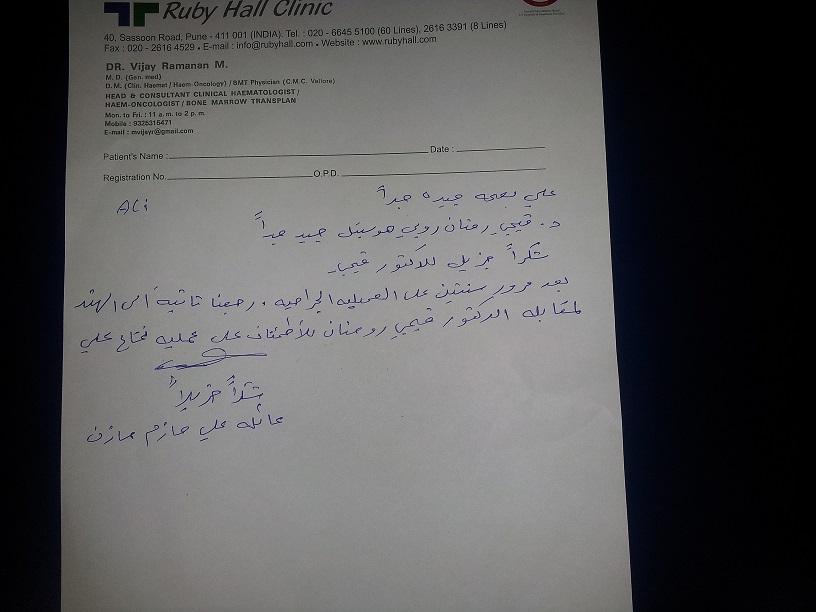 Ruby Hall Clinic
40, Sassoon Road, Pune - 411 001 (INDIA). Tel. : 020 - 6645 5100 (60 Lines), 2616 3391 (8 Lines)
Fax : 020 - 2616 4529 • E-mail : info@rubyhall.com • Website : www.rubyhall.com
DR. Vijay Ramanan M.
M. D. (Gen. med)
D. M. (Clin. Haemat / Haem-Oncology) / BMT Physician (C.M.C. Vellore)
HEAD & CONSULTANT CLINICAL HAEMATOLOGIST /
HAEM-ONCOLOGIST / BONE MARROW TRANSPLAN
Mon. to Fri. : 11 a. m. to 2 p. m.
Mobile : 9325315471
E-mail : mvijayr@gmail.com
Patient's Name : Date :
Registration No. O.P.D.
Ali
علي بصحه جيده جداً
د. فيجي رمنان روبي هوسبتل جيد جداً
شكراً جزيل للدكتور فيجاي
بعد مرور سنتين على العمليه الجراحيه . رجعنا ثانيةً الى الهند
لمقابله الدكتور فيجي رومنان للأطمئنان على عمليه نخاع علي
شكراً جزيلاً
عائله علي حازم مازن